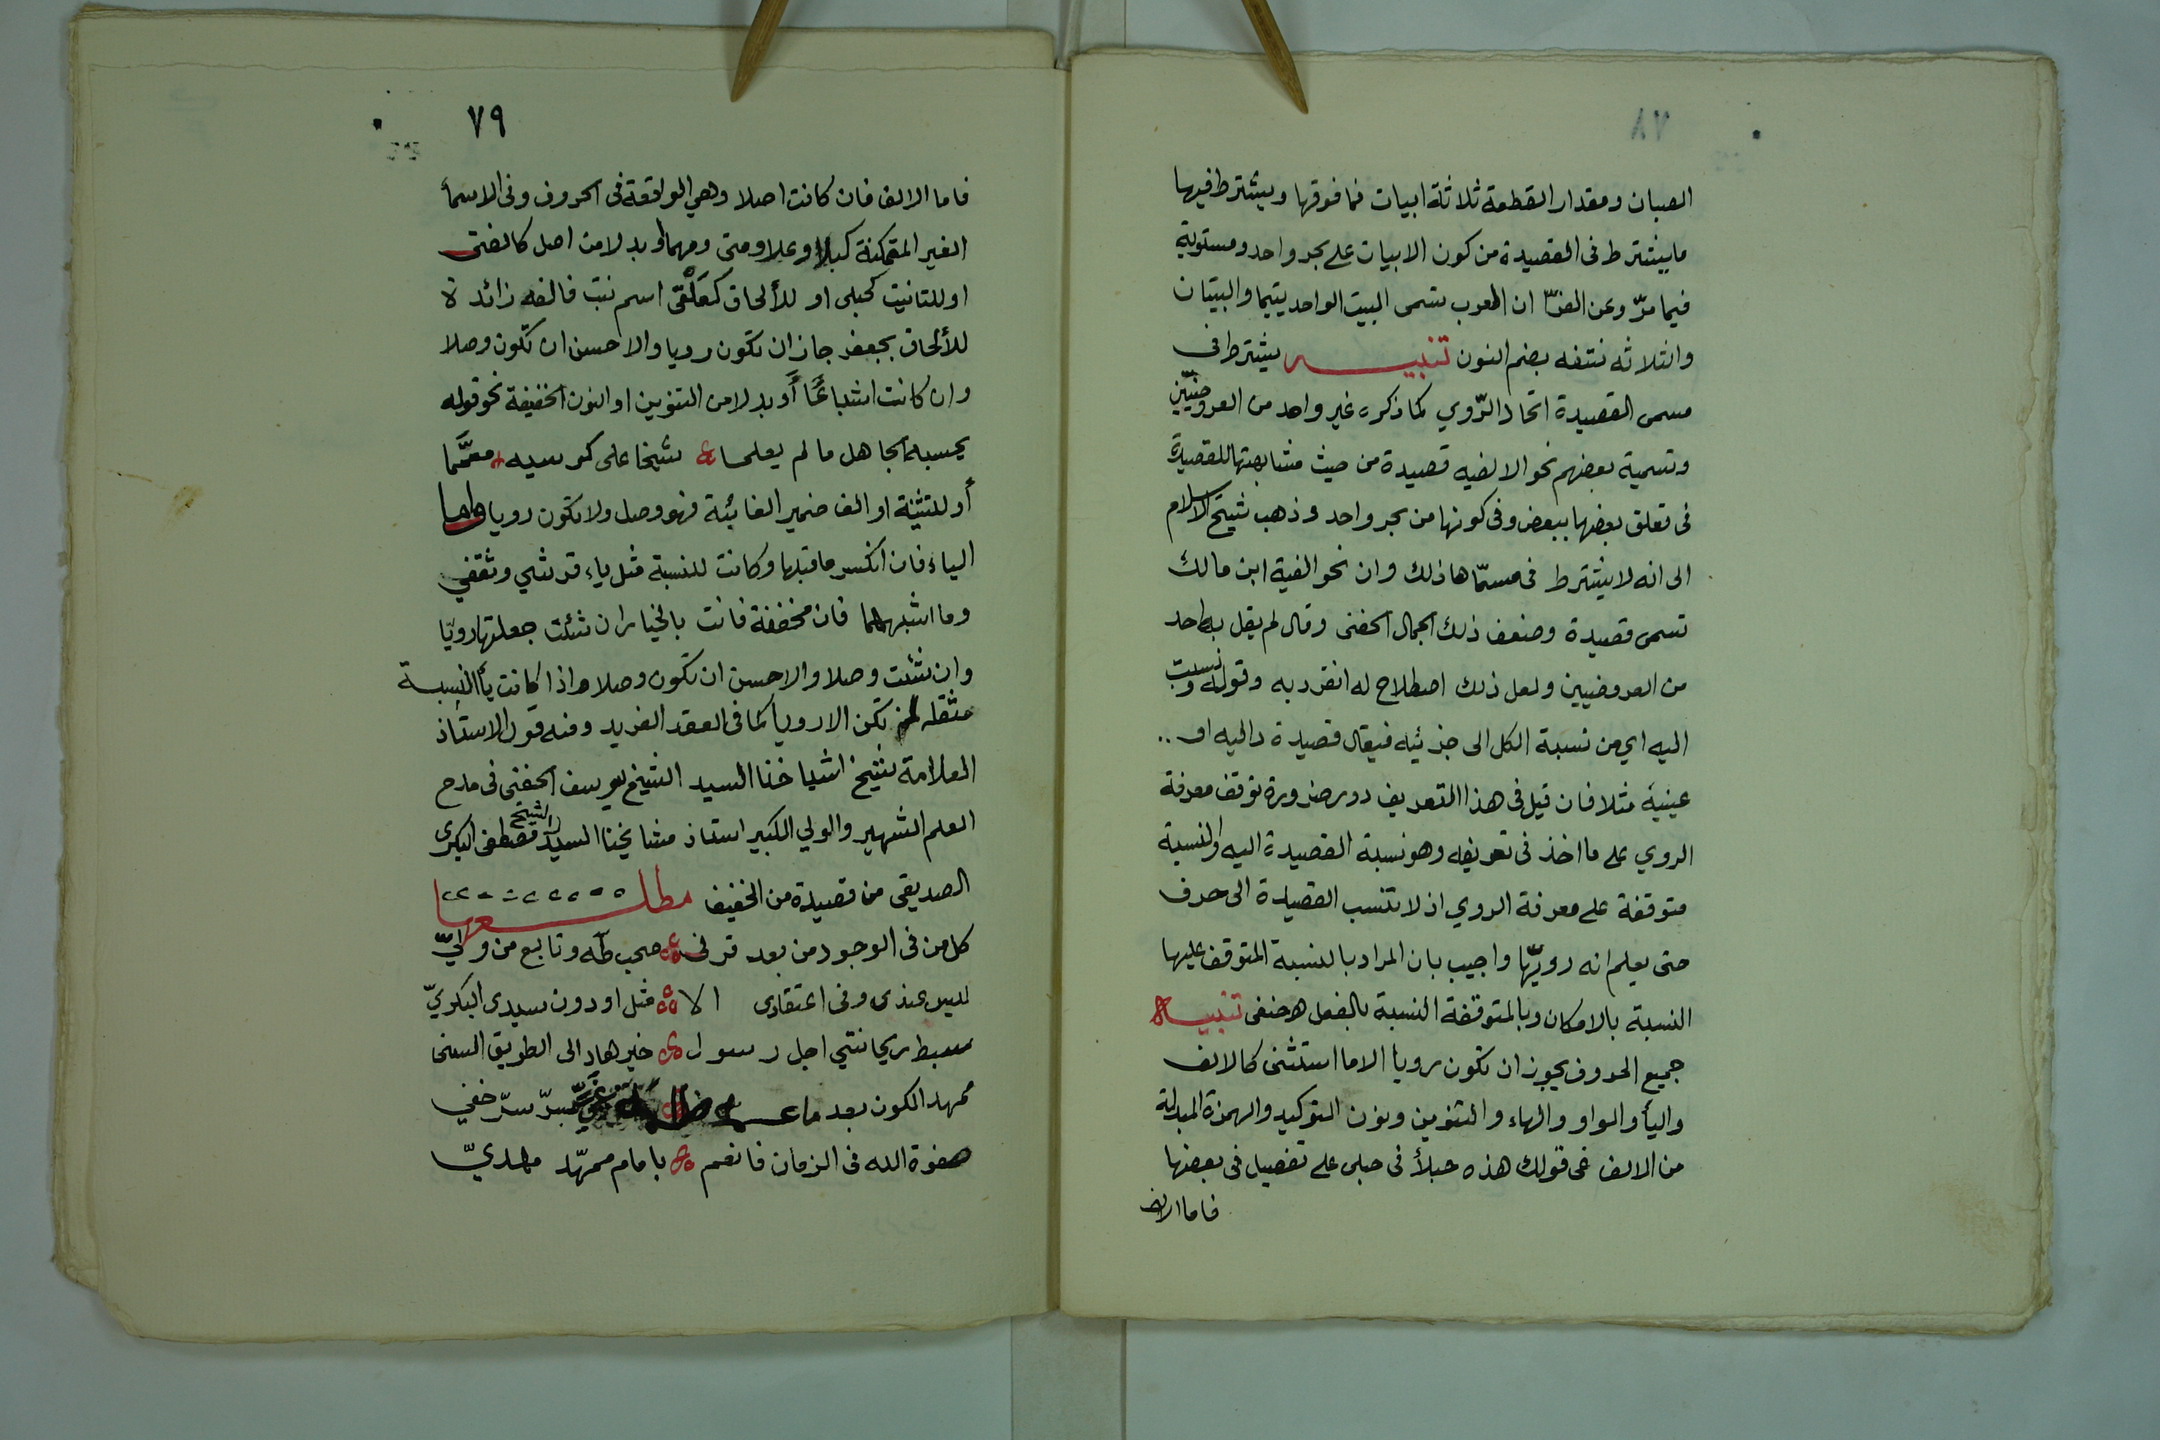 ٧٨
الصبان ومقدار القطعة ثلاثة ابيات فما فوقها ويشترط فيها
ما يشترط في القصيدة من كون الابيات على بحر واحد ومستوية
فيما مرّ وعن الفرّا ان العرب تسمى البيت الواحد يتيما والبيتان
والثلاثه نتفه بضم النون تنبيه يشترط في
مسمى القصيدة اتحاد الرّوي كما ذكره غير واحد من العروضيّين
وتسمية بعضهم نحو الالفيه قصيدة من حيث مشابهتها للقصيدة
في تعلق بعضها ببعض وفي كونها من بحر واحد وذهب شيخ الاسلام
الى انه لا يشترط في مسمّاها ذلك وان نحو الفية ابن مالك
تسمى قصيدة وضعف ذلك الجمال الحفنى وقال لم يقل به احد
من العروضيين ولعل ذلك اصطلاح له انفرد به وقوله ونسبت
اليه اي من نسبة الكل الى جزئيه فيقال قصيدة داليه او ..
عينية مثلا فان قيل في هذا التعريف دور ضرورة توقف معرفة
الروي على ما اخذ في تعريفه وهو نسبة القصيدة اليه والنسبة
متوقفة على معرفة الروي اذ لا تنسب القصيدة الى حرف
حتى يعلم انه رويّها واجيب بان المراد بالنسبة المتوقف عليها
النسبة بالامكان وبالمتوقفة النسبة بالفعل ه حفنى تنبيه
جميع الحروف يجوز ان تكون رويا الا ما استثنى كالالف
واليأ والواو والهاء والتنوين ونون التوكيد والهمزة المبدلة
من الالف في قولك هذه حبلأ في حبلى على تفصيل في بعضها
فاما الالف
٧٩
فاما الالف فان كانت اصلا وهي الواقعة في الحروف وفى الاسمأ
الغير المتمكنة كبلا وعلا ومتى ومهما او بدلا من اصل كالفتى
او للتانيث كحبلى او للألحاق كعَلْقى اسم نبت فالفه زائدة
للألحاق بجعفر جاز ان تكون رويا والاحسن ان تكون وصلا
وان كانت اشباعًا أو بدلا من التنوين او النون الخفيفة نحو قوله
يحسبه الجاهل ما لم يعلما شيخا على كرسيه معمّما
أو للتثنية او الف ضمير الغائبة فهو وصل ولا تكون رويا واما
الياء فان انكسر ما قبلها وكانت للنسبة مثل ياء قرشي وثقفي
وما اشبههما فان مخففة فانت بالخيار ان شئت جعلتها رويّا
وان شئت وصلا والاحسن ان تكون وصلا واذا كانت يأ النسبة
مثقله لم تكن الا رويا كما في العقد الفريد ومنه قول الاستاذ
العلامة شيخ اشياخنا السيد الشيخ يوسف الحفنى فى مدح
العلم الشهير والولي الكبير استاذ مشايخنا السيد الشيخ مصطفى البكرى
الصديقى من قصيدة من الخفيف مطلعها
كل من فى الوجود من بعد قرنى صحب طه وتابع من وليّ
ليس عندى وفى اعتقادى الا مثل او دون سيدى البكريّ
سبط ريحانتي اجل رسول خير هاد الى الطريق السنى
ممهد الكون بعد ما بسرّ سرّ خفي
صفوة الله فى الزمان فانعم بامام ممهّد مهديّ